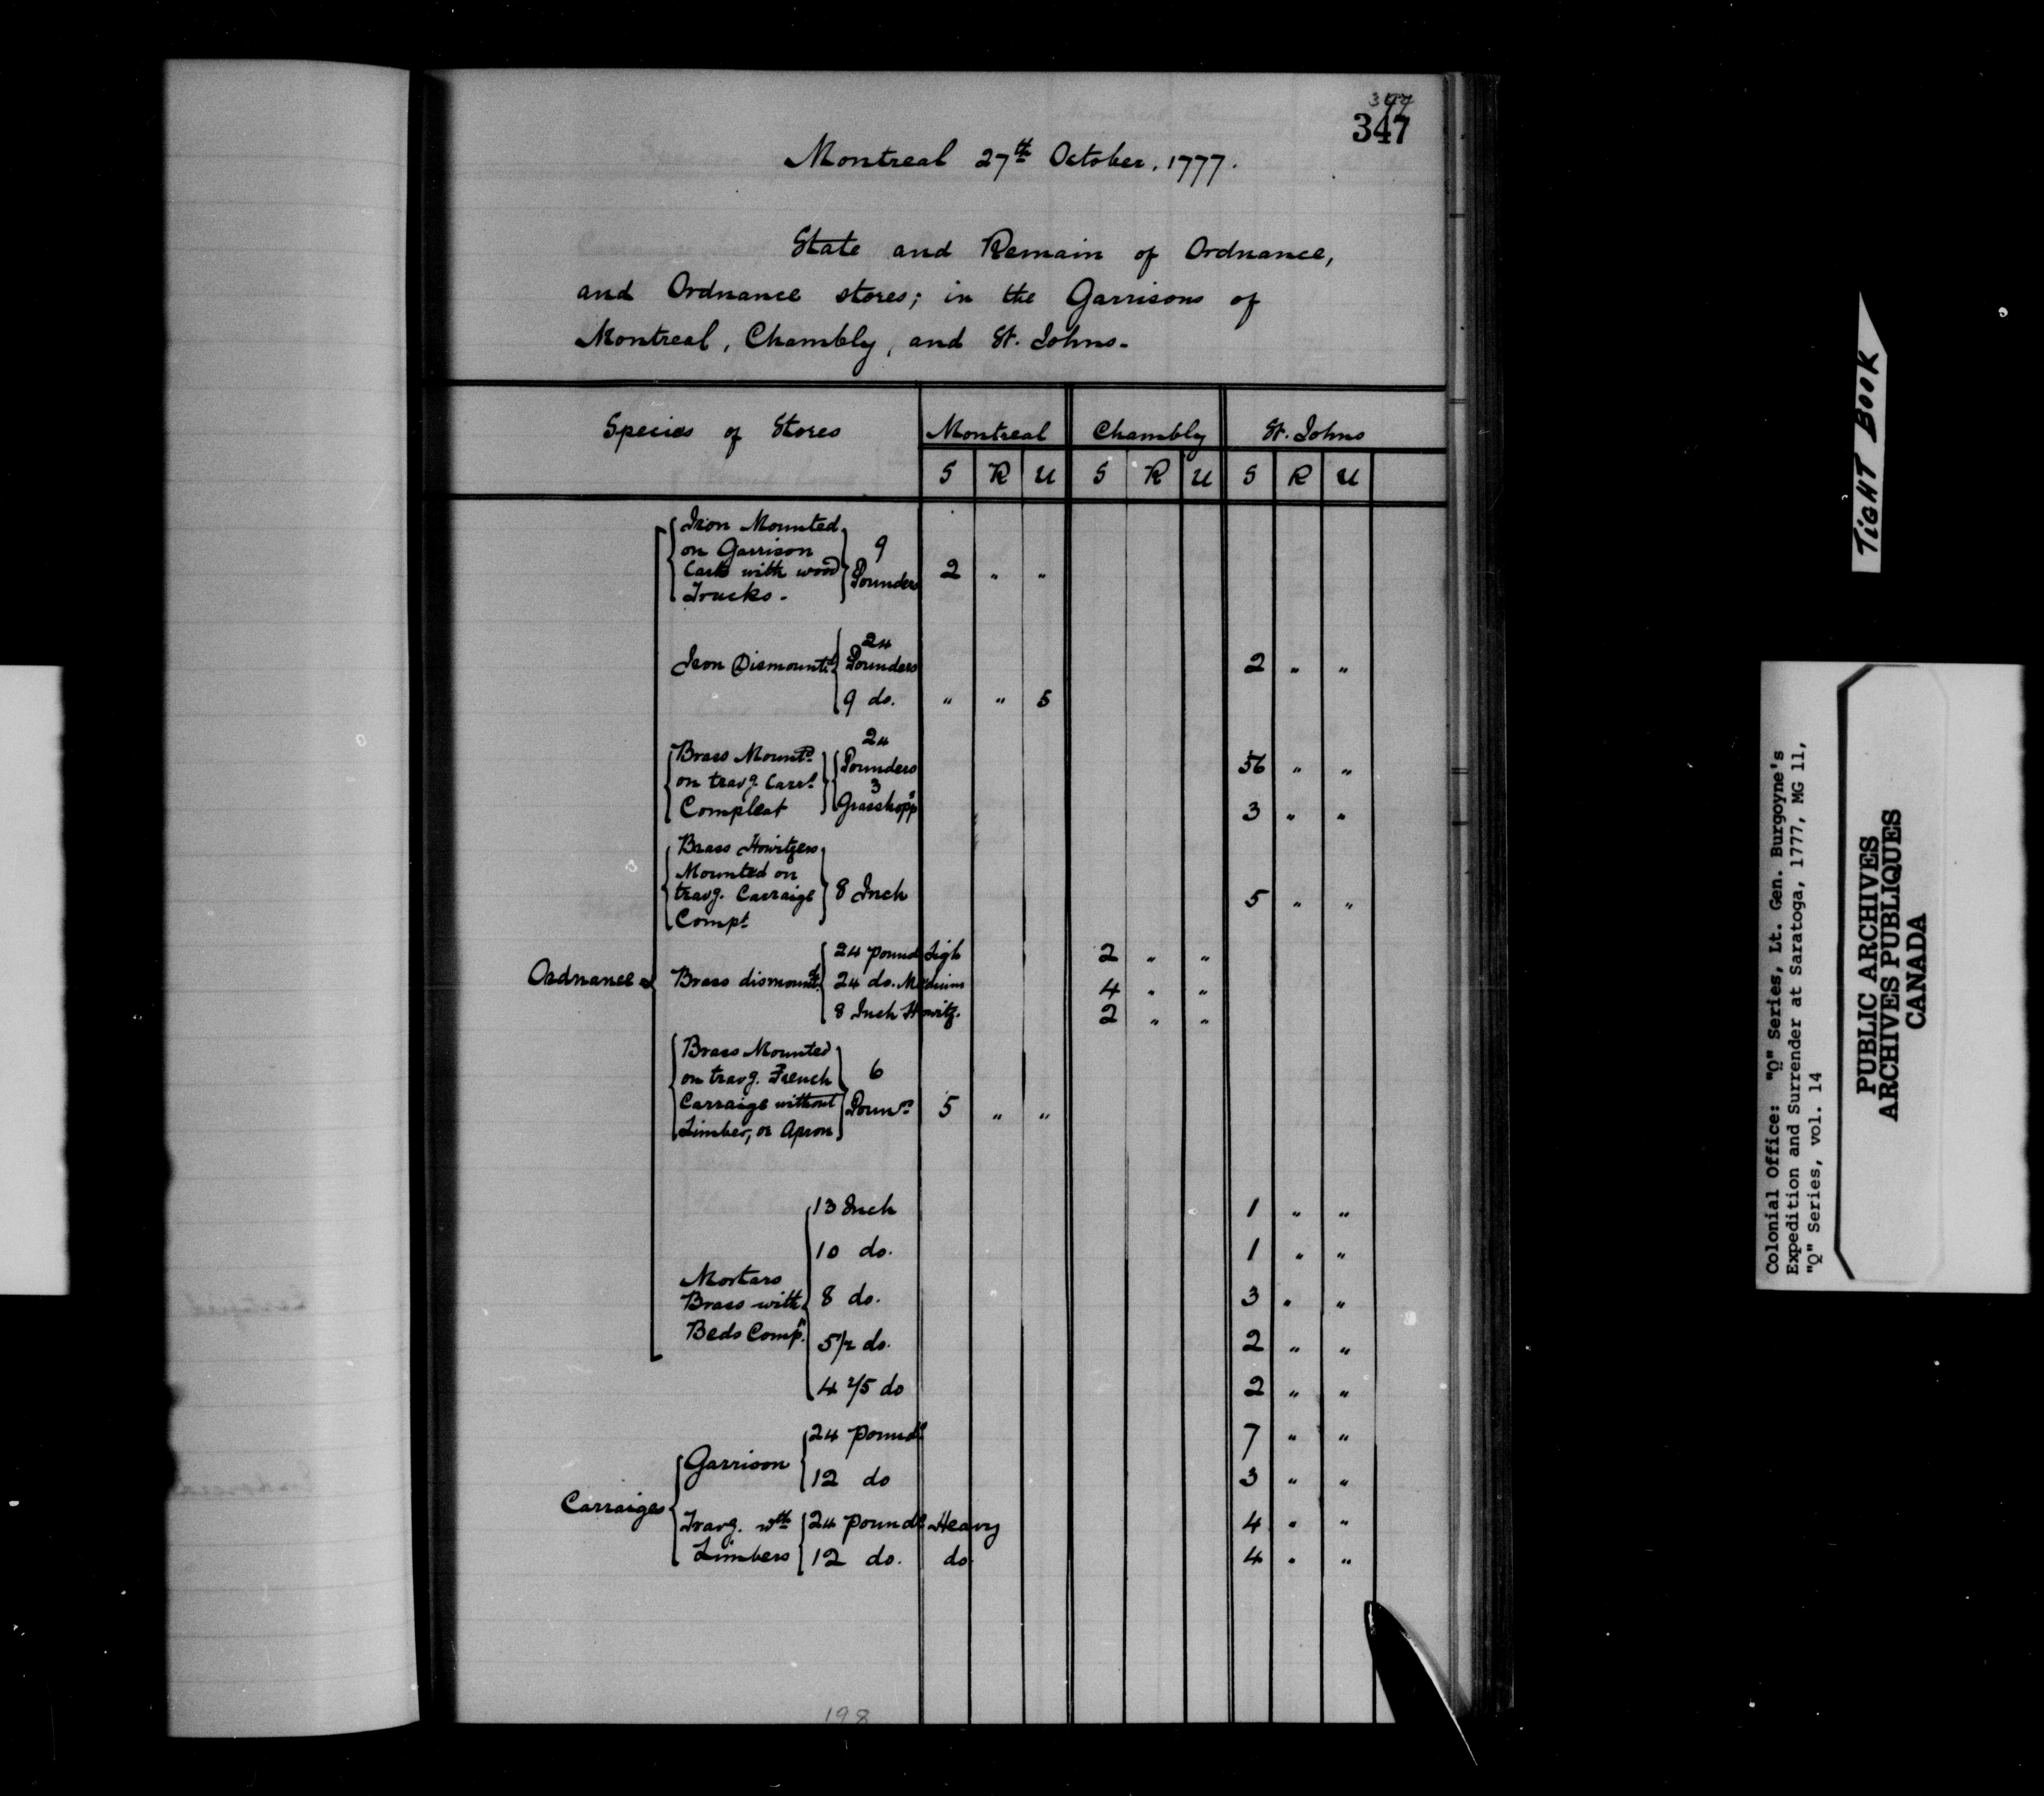 347
347
Montreal 27th October. 1777.
State and Remain of Ordnance,
and Ordnance stores; in the Garrisons of
Montreal, Chambly, and St. Johns-
Species of Stores Montreal Chambly St. Johns
S R U S R U S R U
Iron Mounted
on Garrison 9
Carrs with wood Pounders 2 " "
Trucks-
24
Iron Dismountd Pounders 2 " "
9 do. " " 5
24
Brass Mountd Pounders 56 " "
on travg. Carrs 3
Compleat Grasshopps 3 " "
Brass Howitzers
Mounted on
travg. Carraige 8 Inch 5 " "
Compt
24 pound Ligh 2 " "
Ordnance Brass dismountd 24 do. Medium 4 " "
8 Inch Howitz. 2 " "
Brass Mounted
on travg. French 6
Carraige without Pounrs 5 " "
Limber, or Apron
13 Inch 1 " "
10 do. 1 " "
Mortars
Brass with 8 do. 3 " "
Beds Comp.
5 1/2 do. 2 " "
4 2/5 do 2 " "
24 pound 7 " "
Garrison
12 do 3 " "
Carraiges
Travg. wth 24 pound Heavy 4 " "
Limbers 12 do. do 4 " "
198
TIGHT BOOK
Colonial Office: "Q" Series, Lt. Gen. Burgoyne's
Expedition and Surrender at Saratoga, 1777, MG 11,
"Q" Series, vol. 14
PUBLIC ARCHIVES
ARCHIVES PUBLIQUES
CANADA